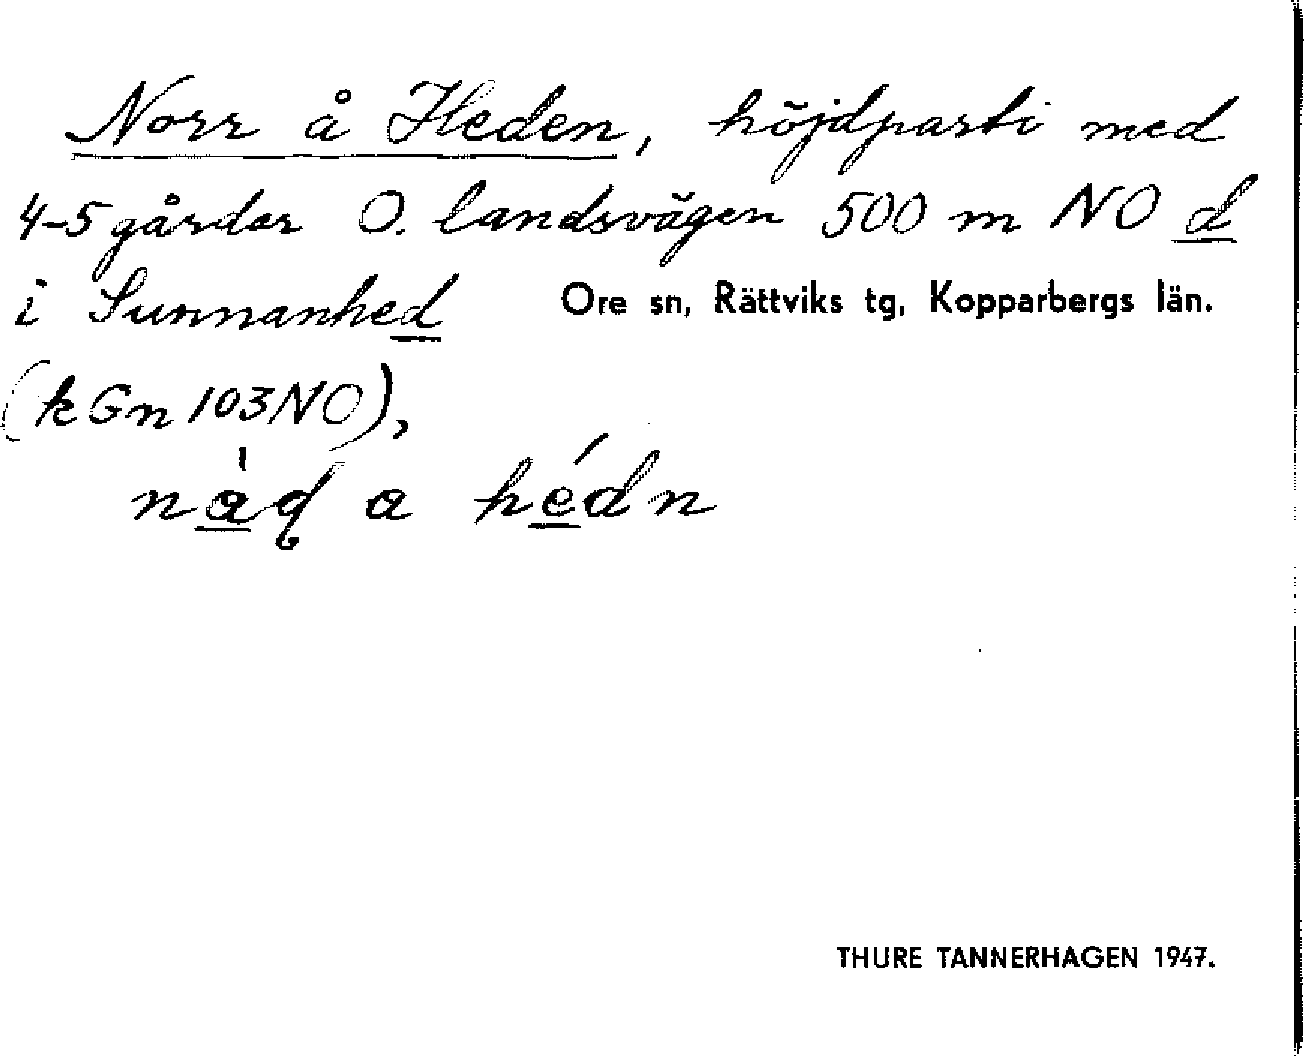 Norr å Heden, höjdparti med
4-5 gårdar O. landsvägen 500 m NO d
i Sunnanhed Ore sn, Rättviks tg, Kopparbergs län.
(k Gn 103 NO),
a hédn
THURE TANNERHAGEN 1947.